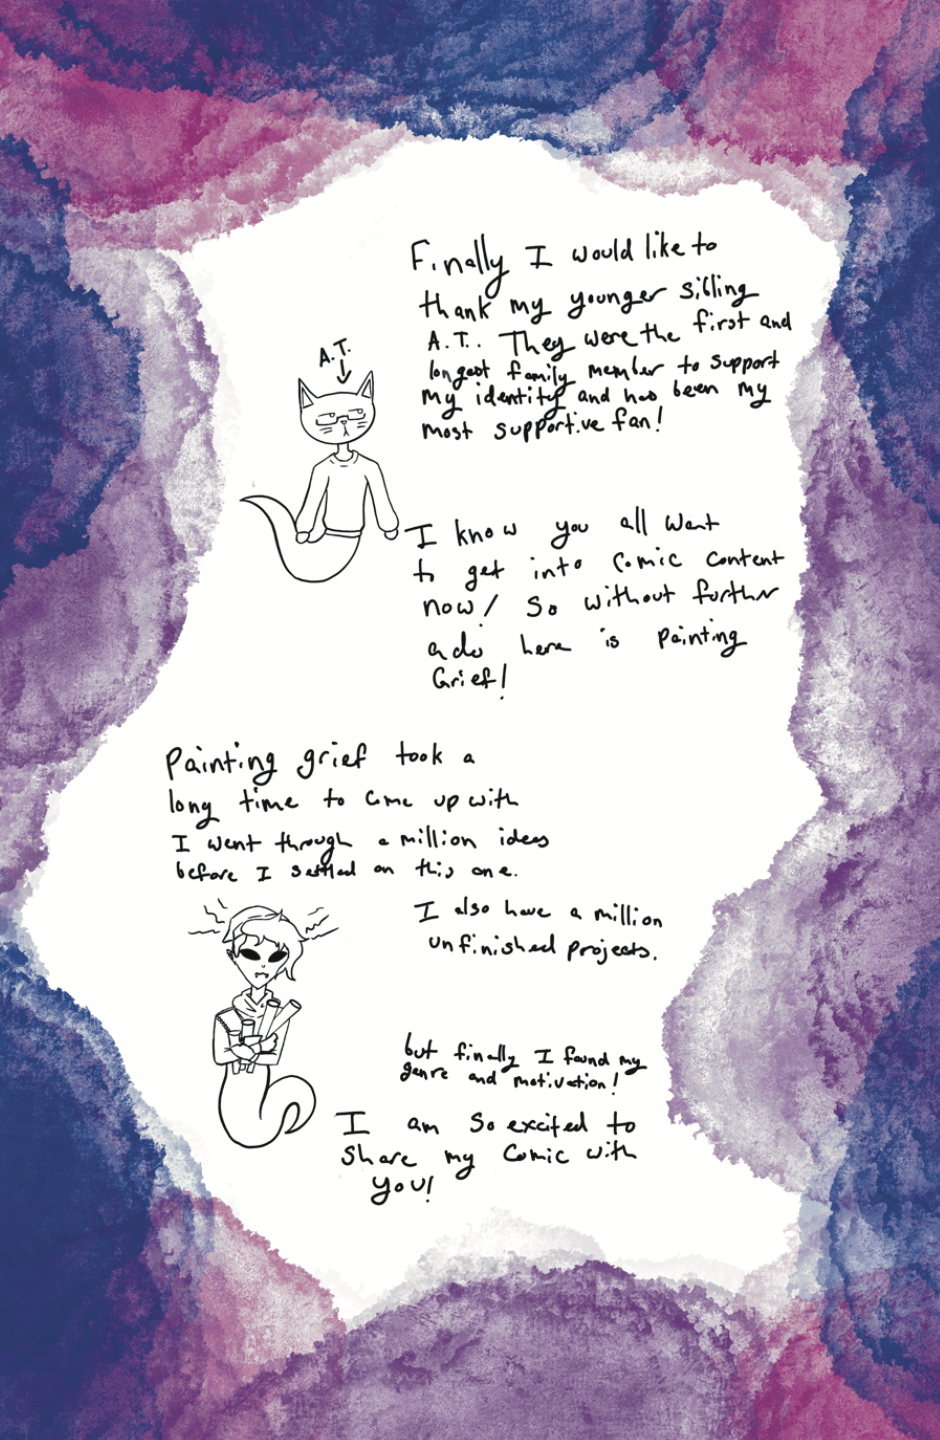 Finally I would like to
thank my younger sibling
A.T.. They were the first and
longest family member to support
my identity and has been my
most supportive fan!
A.T.
I know you all want
to get into comic content
now! So without further
ado here is painting
Grief!
Painting grief took a
long time to come up with
I went through a million ideas
before I settled on this one.
I also have a million
unfinished projects.
but finally I found my
genre and motivation!
I am so excited to
share my comic with
you!